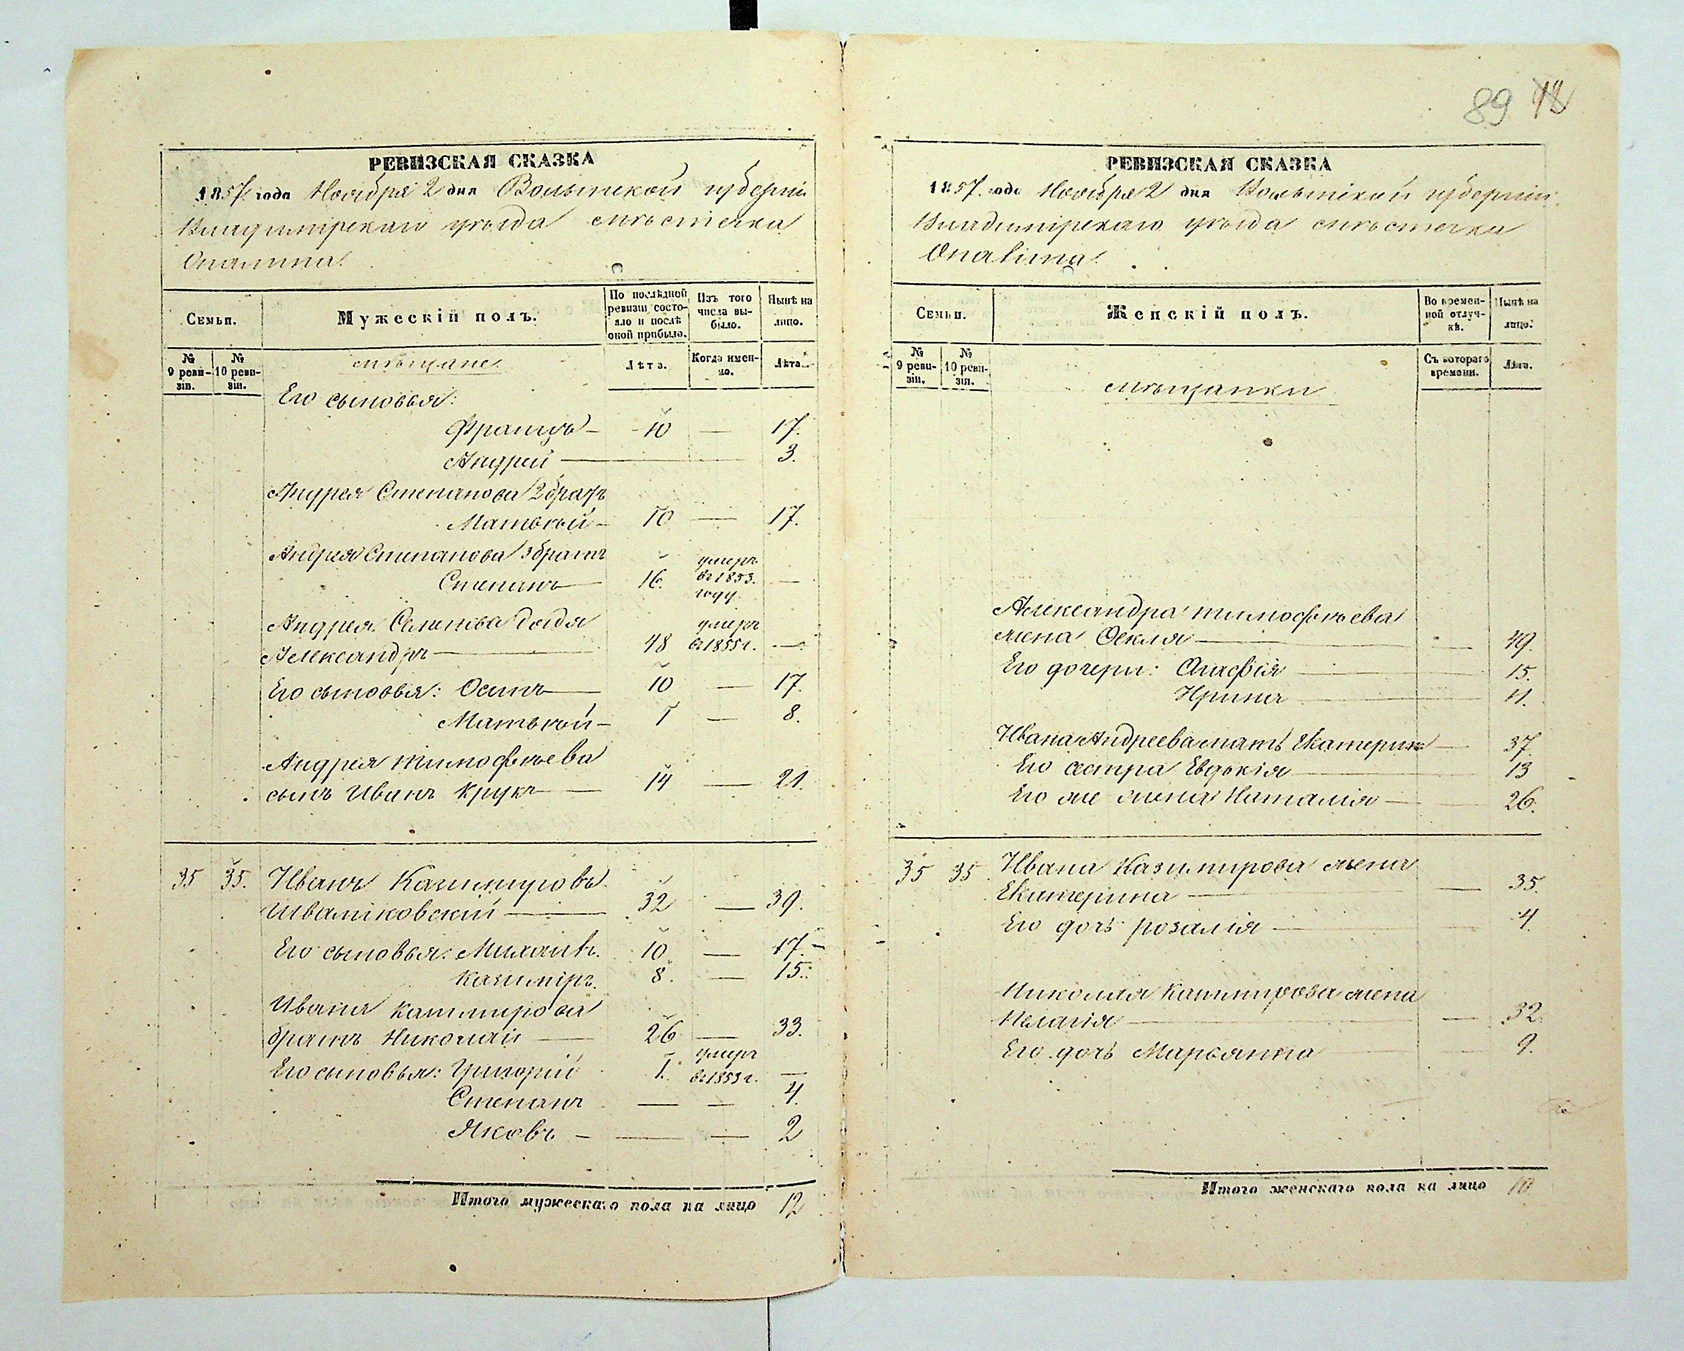 89 18
РЕВИЗСКАЯ СКАЗКА
1857 года Ноября 2 дня Волынской губерніи
Владимірскаго уѣзда мѣстечка
Опалина.
Семьи.
Мужескій полъ.
По послѣдней ревизіи состояло и послѣ оной прибыло.
Изъ того числа выбыло.
Нынѣ на лицо.
№ 9 ревизіи.
№ 10 ревизіи.
мѣщане
Лѣта.
Когда именно.
Лѣта.
Его сыновья:
Францъ — 10 — 17.
Андрей — 3.
Андрея Степанова 2 братъ
Матвѣй — 10 — 17.
Андрея Степанова 3 братъ
Степанъ — 16. умеръ въ 1853. году. —
Андрея дядя
Александръ — 48 умеръ въ 1855 г. —
Его сыновья: Осипъ — 10 — 17.
Матвѣй — 1 — 8.
Андрея Тимофѣева
сынъ Иванъ Крукъ — 14 — 21.
35 35. Иванъ Казимировъ
— 32 — 39.
Его сыновья: Михаилъ. 10 — 17.
Казиміръ. 8. — 15.
Ивана Казимирова
братъ Николай — 26 — 33.
Его сыновья: Григорій 1. умеръ въ 1853 г. —
Степанъ — — 4.
Яковъ — — — 2
Итого мужескаго пола на лицо 12
РЕВИЗСКАЯ СКАЗКА
1857 года Ноября 2 дня Волынской губерніи
Владимірскаго уѣзда мѣстечка
Опалина.
Семьи.
Женскій полъ.
Во временной отлучкѣ.
Нынѣ на лицо.
№ 9 ревизіи.
№ 10 ревизіи.
Съ котораго времени.
Лѣта.
мѣщанки
Александра Тимофѣева
жена Фекла — 49.
Его дочери: — 15.
Ирина — 11.
Ивана Андреева мать Екатерина — 37
Его сестра Евдокія — 13
Его же жена Наталія — 26.
35 35. Ивана Казимирова жена
Екатерина — 35.
Его дочь Розалія — 4.
Николая Казимирова жена
Пелагія — 32.
Его дочь Марьянна — 9.
Итого женскаго пола на лицо 10